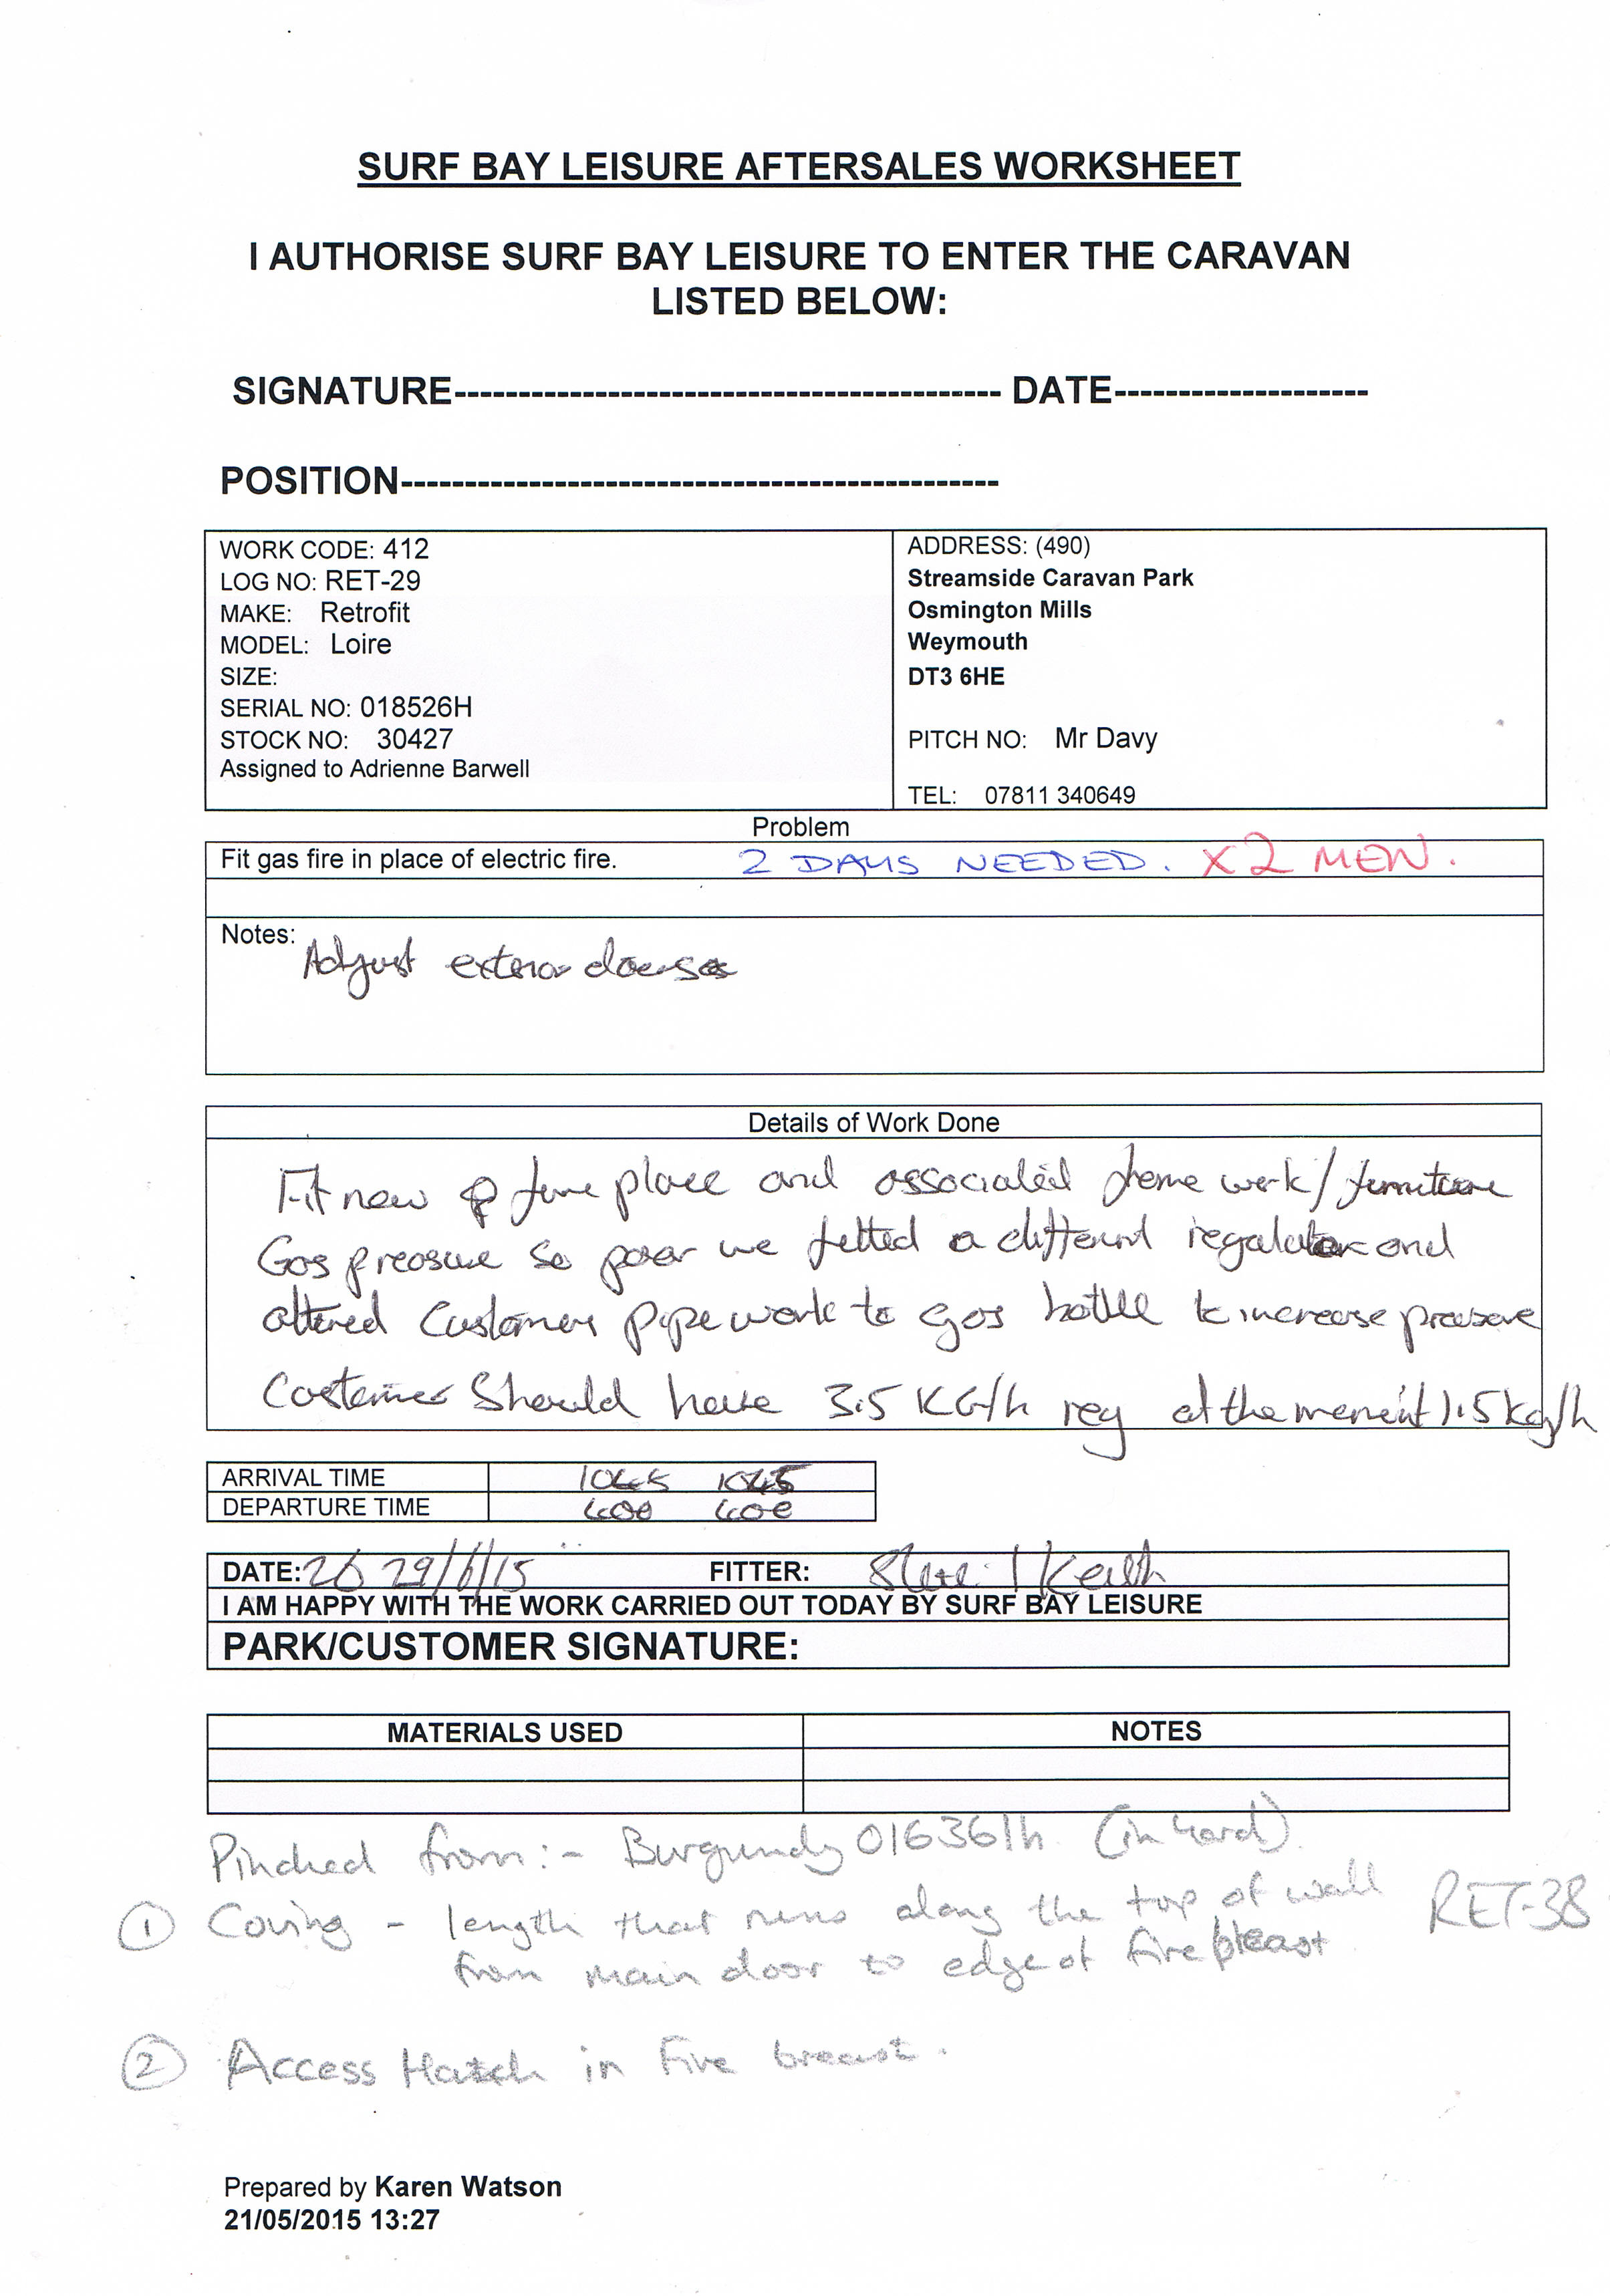 SURF BAY LEISURE AFTERSALES WORKSHEET
I AUTHORISE SURF BAY LEISURE TO ENTER THE CARAVAN
LISTED BELOW:
SIGNATURE------------------------------------------- DATE--------------------
POSITION-----------------------------------------------
WORK CODE: 412
LOG NO: RET-29
MAKE: Retrofit
MODEL: Loire
SIZE:
SERIAL NO: 018526H
STOCK NO: 30427
Assigned to Adrienne Barwell
ADDRESS: (490)
Streamside Caravan Park
Osmington Mills
Weymouth
DT3 6HE
PITCH NO: Mr Davy
TEL: 07811 340649
Problem
Fit gas fire in place of electric fire. 2 DAYS NEEDED. X2 MEN.
Notes:
Adjust exterior doors
Details of Work Done
Fit new fire place and associated frame work/furniture
Gas pressure so poor we fitted a different regulator and
altered Customers pipe work to gas bottle to increase pressure
Customer Should have 3.5 KG/h reg at the moment 1.5kg/h
ARRIVAL TIME 1045 1045
DEPARTURE TIME 400 400
DATE: 26 29/6/15 FITTER: Steve / Keith
I AM HAPPY WITH THE WORK CARRIED OUT TODAY BY SURF BAY LEISURE
PARK/CUSTOMER SIGNATURE:
MATERIALS USED NOTES
Pinched from:- Burgundy 016361h (in yard).
① Coving - length that runs along the top of wall RET-38
from main door to edge of fire breast
② Access Hatch in Fire breast.
Prepared by Karen Watson
21/05/2015 13:27